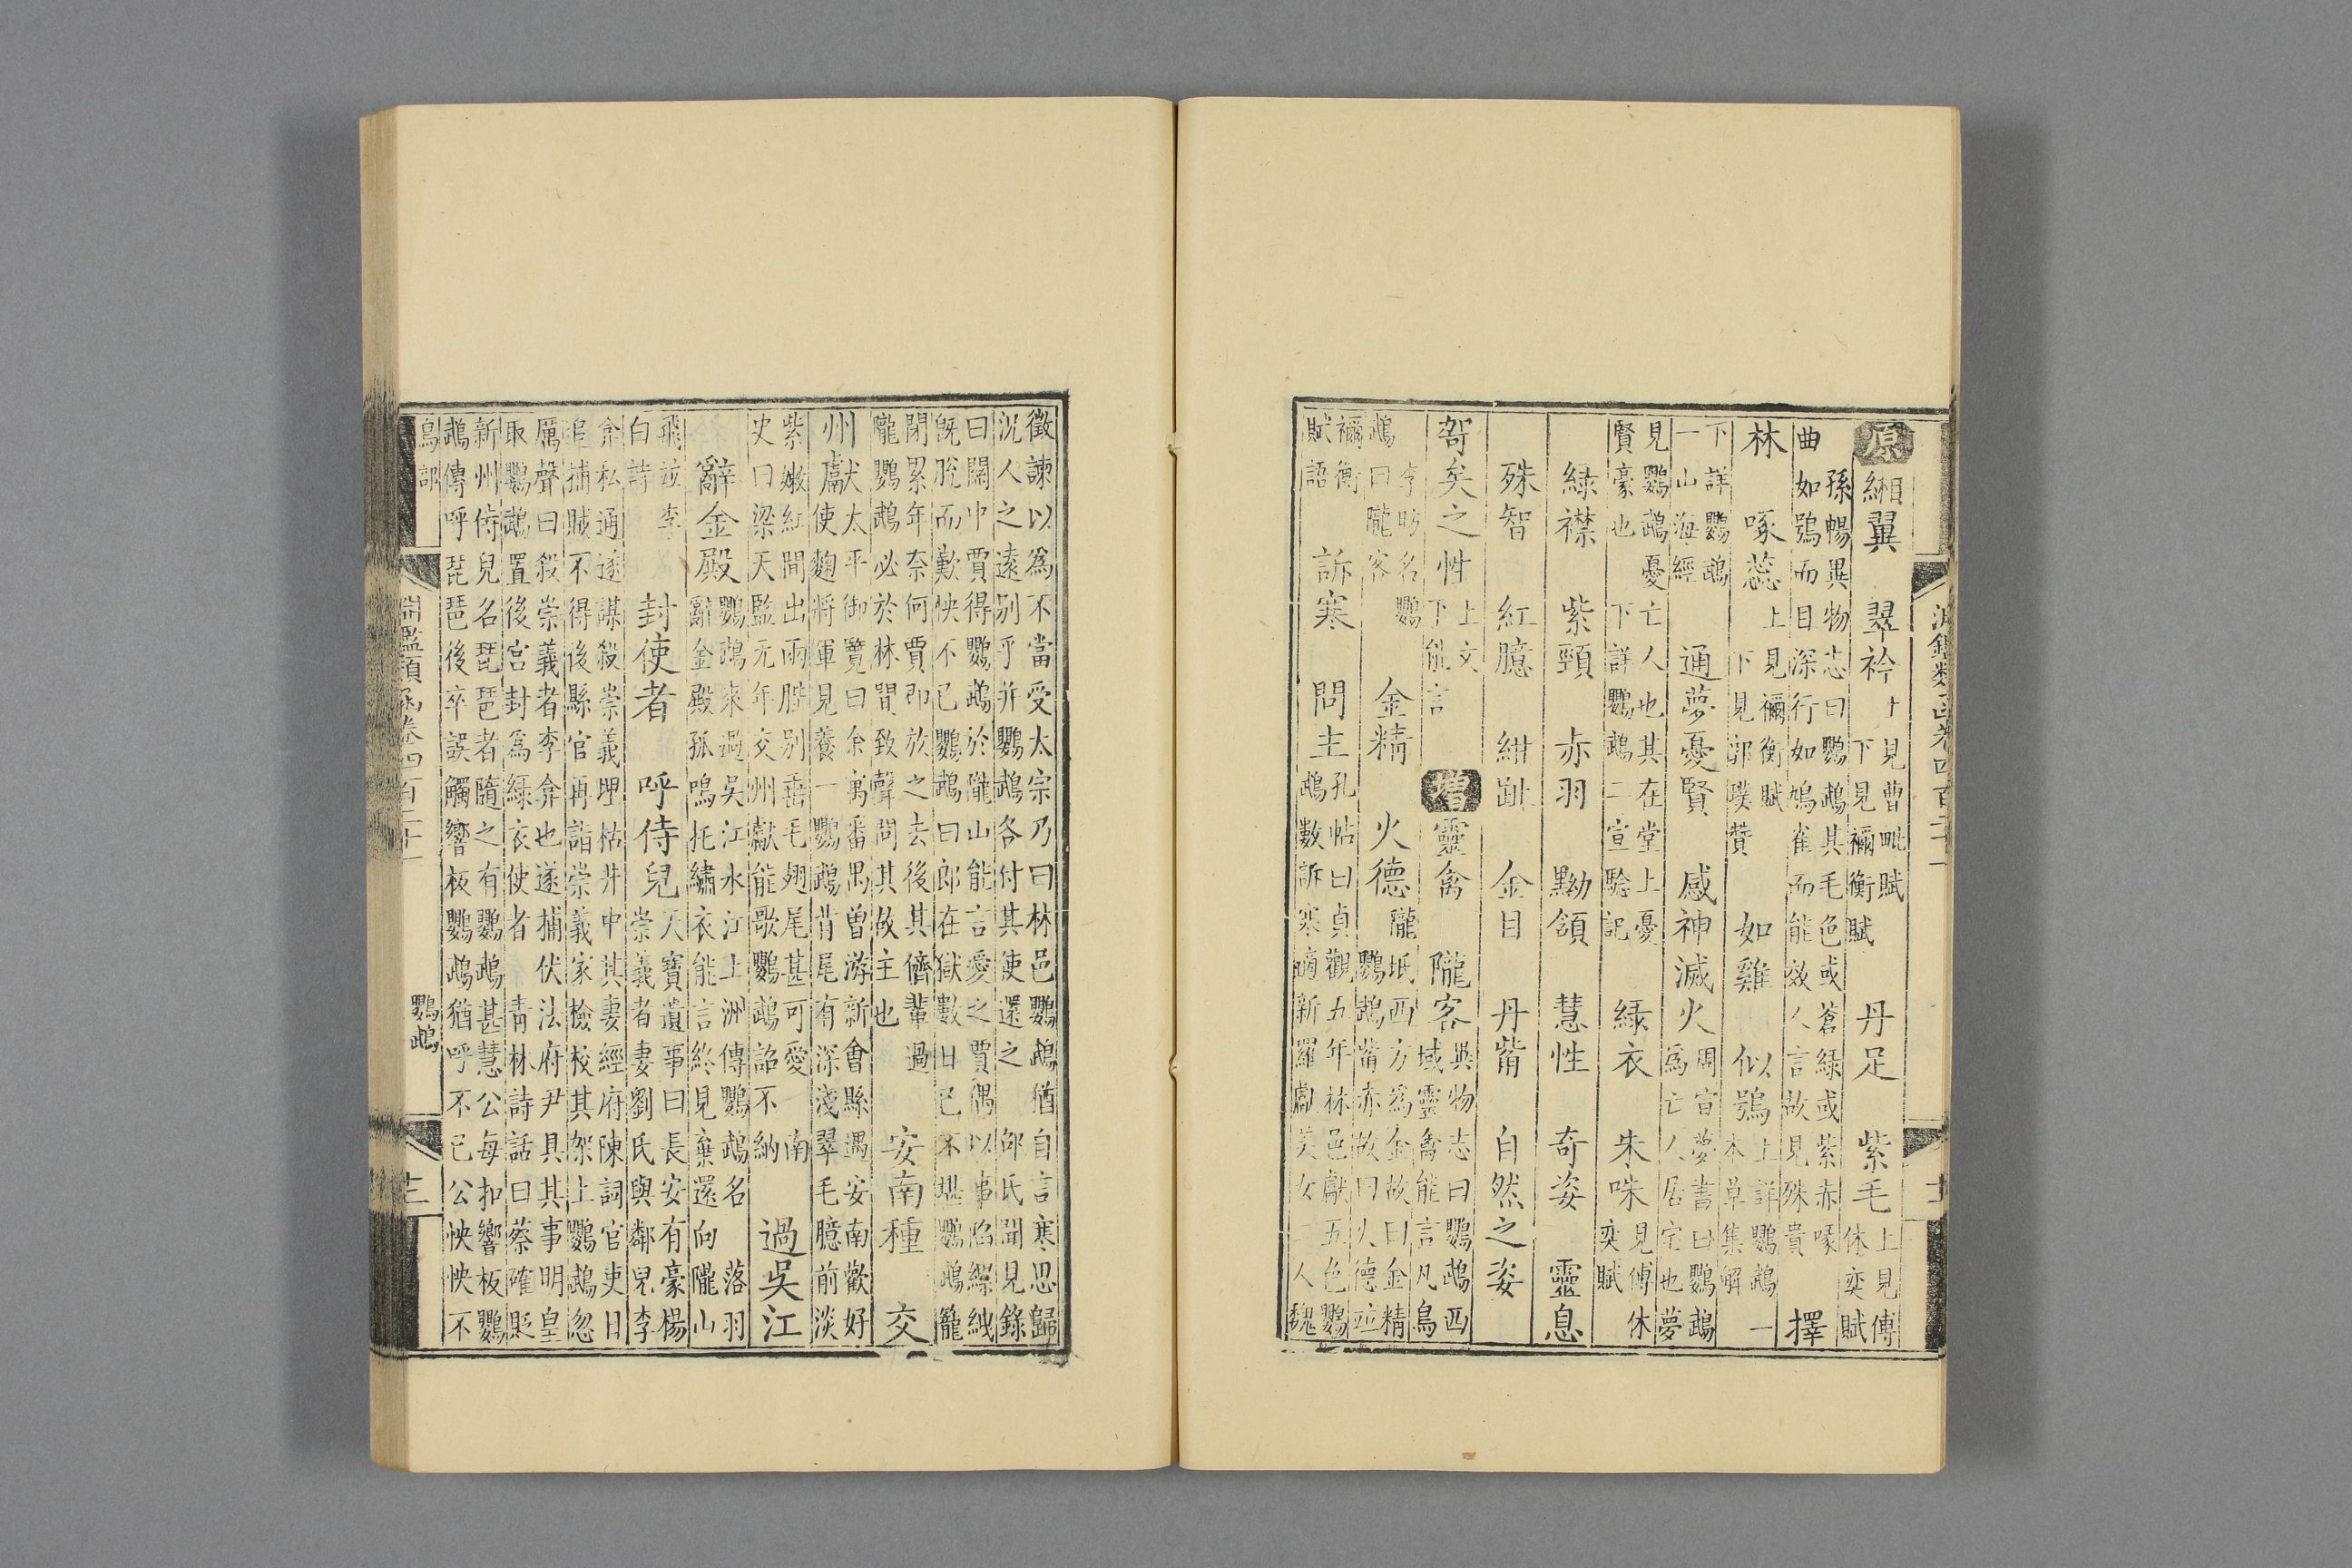 淵鑑類函卷四百二十一
原 緗翼 翠衿 上見曹毗賦
下見禰衡賦 丹足 紫毛 上見傅
休奕賦
孫暢異物志曰鸚鵡其毛色或蒼綠或紫赤喙
曲如鴞而目深行如鳩雀而能效人言故見殊貴 擇
林 啄蕊 上見禰衡賦
下見郭璞贊 如雞 似鴞 上詳鸚鵡一
本草集解
下詳鸚鵡
一山海經 通夢憂賢 感神滅火 周宣夢書曰鸚鵡
爲亡人居宅也夢
見鸚鵡憂亡人也其在堂上憂
賢豪也 下詳鸚鵡二宣驗記 綠衣 朱咮 見傅休
奕賦
綠襟 紫頸 赤羽 黝頷 慧性 奇姿 靈息
殊智 紅臆 紺趾 金目 丹觜 自然之姿
哿矣之性 上文
下能言 增 靈禽 隴客 異物志曰鸚鵡西
域靈禽能言凡鳥
李昉名鸚
鵡曰隴客 金精 火德 隴坻西方爲金故曰金精
鸚鵡觜赤故曰火德竝
禰衡
賦語 訴寒 問主 孔帖曰貞觀五年林邑獻五色鸚
鵡數訴寒適新羅獻美女二人魏
徵諫以爲不當受太宗乃曰林邑鸚鵡猶自言寒思歸
況人之遠別乎并鸚鵡各付其使還之 邵氏聞見錄
曰關中賈得鸚鵡於隴山能言愛之賈偶以事陷縲絏
旣脫而歎怏不已鸚鵡曰郎在獄數日已不堪鸚鵡籠
閉累年奈何賈即放之去後其儕輩過
隴鸚鵡必於林間致聲問其故主也 安南種 交
州獻 太平御覽曰余寓番禺曾游新會縣遇安南歡好
使麴將軍見養一鸚鵡背尾有深淺翠毛臆前淡
紫嫩紅間出兩胜別垂毛翅尾甚可愛 南
史曰梁天監元年交州獻能歌鸚鵡詔不納 過吳江
辭金殿 鸚鵡來過吳江水江上洲傳鸚鵡名 落羽
辭金殿孤鳴托繡衣能言終見棄還向隴山
飛竝李
白詩 封使者 呼侍兒 天寶遺事曰長安有豪楊
崇義者妻劉氏與鄰兒李
弇私通遂謀殺崇義埋枯井中其妻經府陳詞官吏日
追捕賊不得後縣官再詣崇義家檢校其架上鸚鵡忽
厲聲曰殺崇義者李弇也遂捕伏法府尹具其事明皇
取鸚鵡置後宮封爲綠衣使者 靑林詩話曰蔡確貶
新州侍兒名琵琶者隨之有鸚鵡甚慧公每扣響板鸚
鵡傳呼琵琶後卒誤觸響板鸚鵡猶呼不已公怏怏不
鳥部 鸚鵡
淵鑑類函卷四百二十一